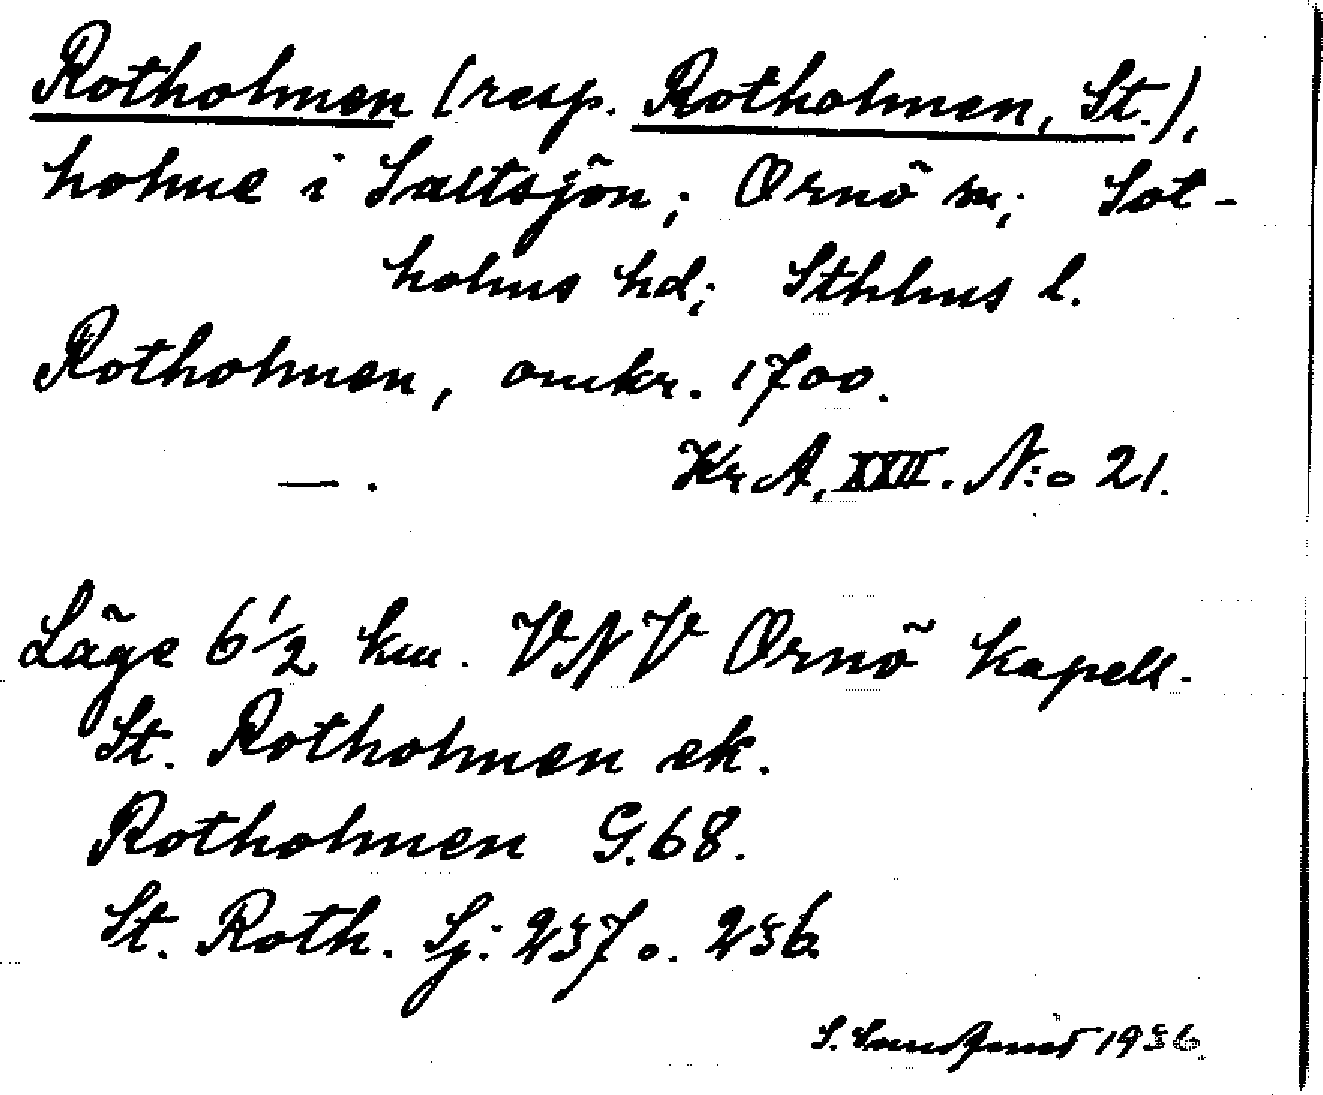 Rotholmen (resp. Rotholmen, St.),
holme i Saltsjön; Ornö sn; Sot-
holms hd; Sthlms l.
Rotholmen, omkr. 1700.
— . KrA. XXII. N:o 21.
Läge 6 1/2 km. VNV Ornö kapell.
St. Rotholmen ek.
Rotholmen G.68.
St. Roth. Sj: 237 o. 236
S. 1936.